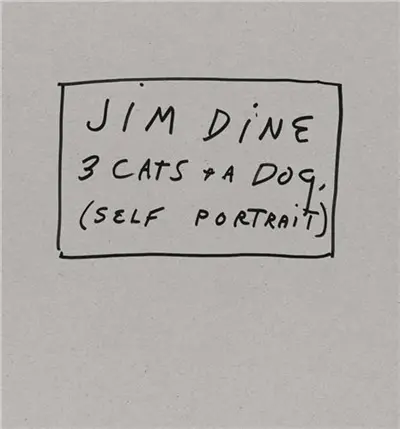 JIM DINE
3 CATS + A DOG.
(SELF PORTRAIT)